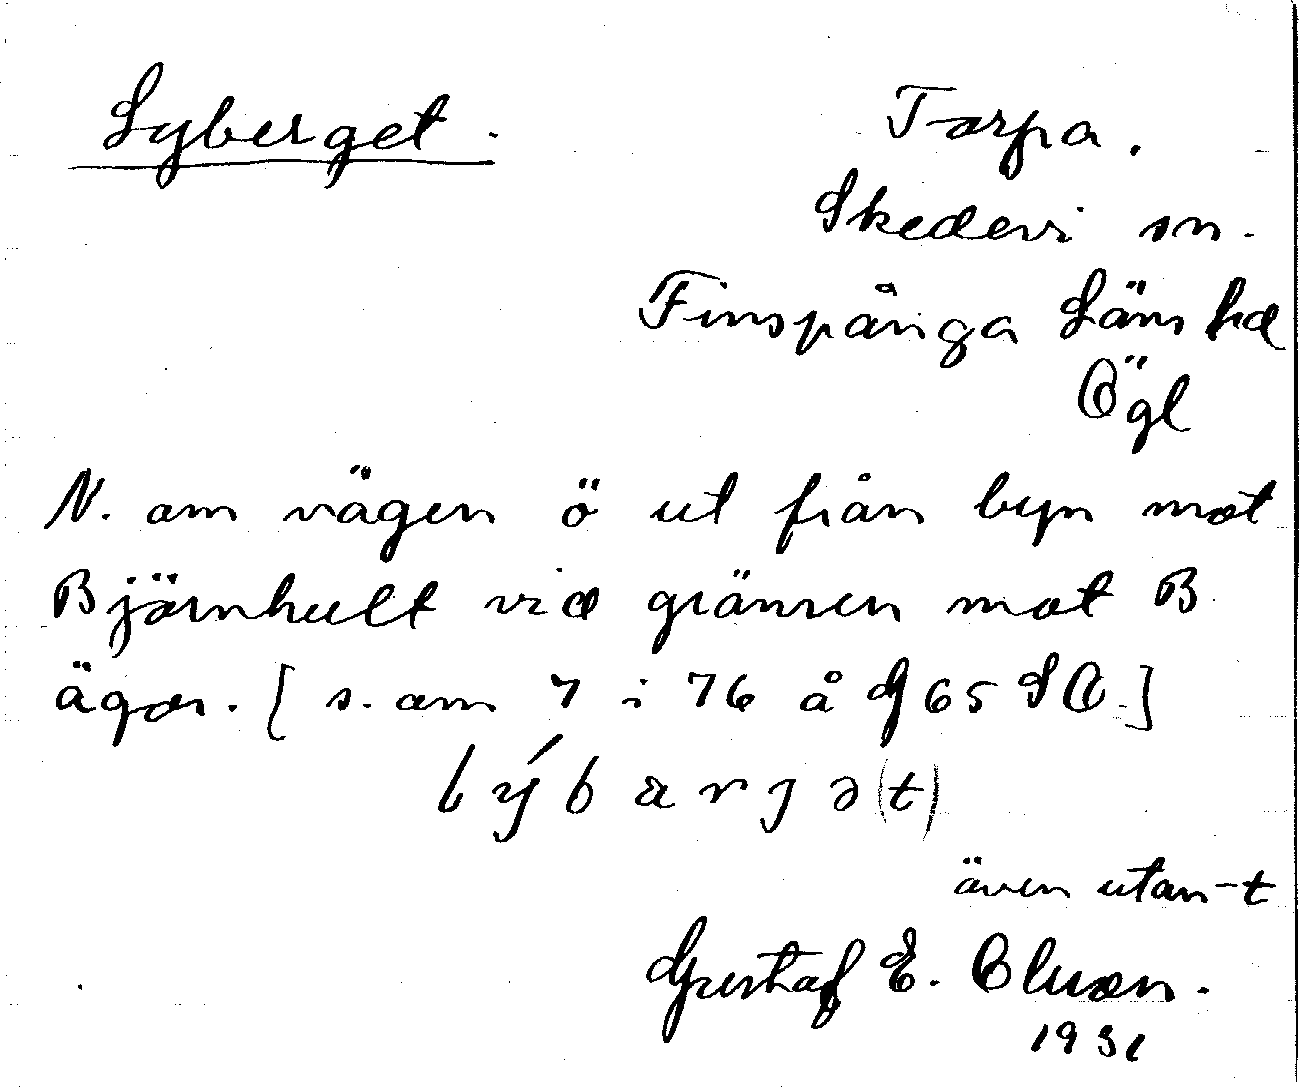 Lyberget.
Torpa.
Skedevi sn.
Finspånga Läns hd
Ögl
N. om vägen ö ut från byn mot
Björnhult vid gränsen mot B
ägor. [ s. om 7 i 76 å G 65 SO.]
lýbarjə(t)
även utan -t
Gustaf E.
1931